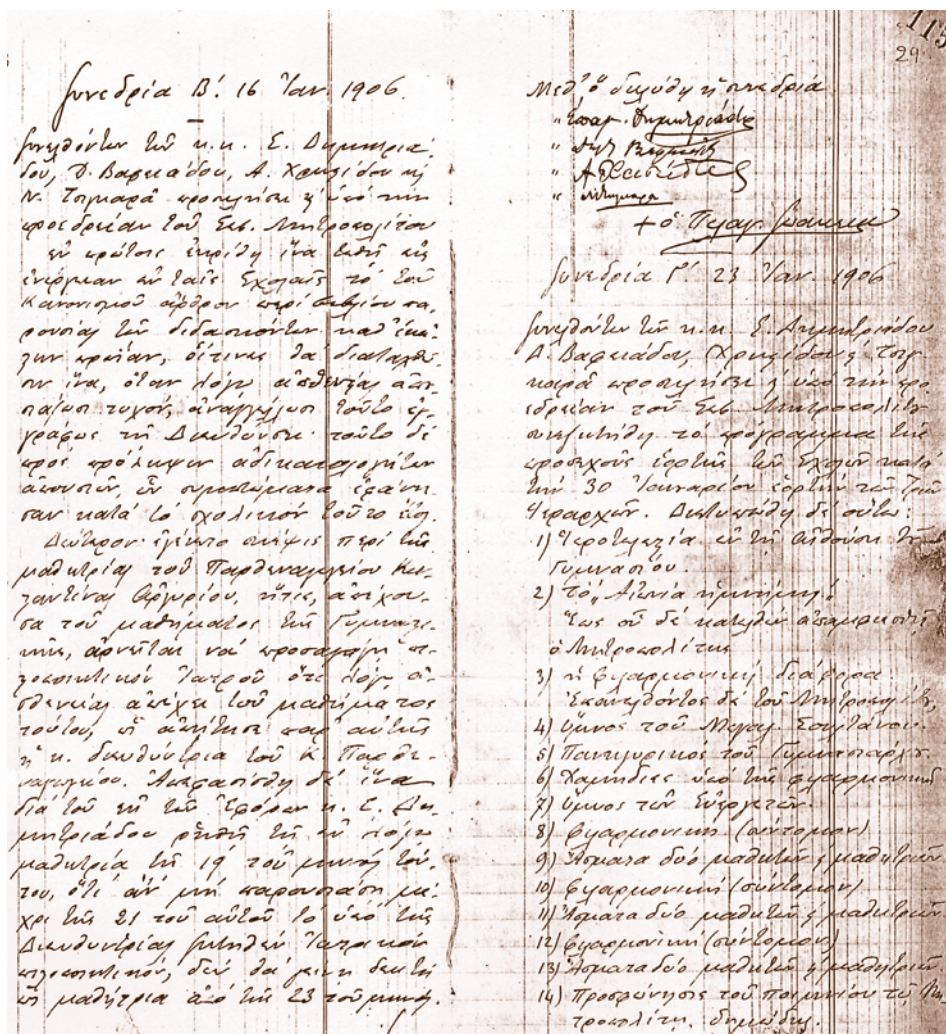 Συνεδρία Β΄. 16 Ἰαν. 1906.
Συνελθόντων τῶν κ.κ. Ε. Δημητριά-
δου, Δ. Βαφειάδου, Α. Χρυσίδου κ
Ν. Τσιγκαρᾶ προσεκλήθη ὑπὸ τὴν
προεδρείαν τοῦ Σεβ. Μητροπολίτου
ἐν πρώτοις ἐκρίθη ἵνα τεθῇ εἰς
ἐνέργειαν ἐν ταῖς Σχολαῖς τὸ τοῦ
Κανονισμοῦ ἄρθρον περὶ πα-
ρουσίας τῶν διδασκόντων καθ' ἑκά-
στην πρωΐαν, οἵτινες θὰ διαταχθῶ-
σιν ἵνα, ὅταν λόγῳ ἀσθενείας ἀπου-
σιάζωσι τυχόν, ἀναγγέλλωσι τοῦτο ἐγ-
γράφως τῇ Διευθύνσει· τοῦτο δὲ
πρὸς πρόληψιν ἀδικαιολογήτων
ἀπουσιῶν, ὧν συμπτώματα ἐφάνη-
σαν κατὰ τὸ σχολικὸν τοῦτο ἔτος.
Δεύτερον· ἐγένετο σκέψις περὶ τῆς
μαθητρίας τοῦ Παρθεναγωγείου Κω-
σταντίνας Ἀργυρίου, ἥτις, ἀπέχου-
σα τοῦ μαθήματος τῆς Γυμναστι-
κῆς, ἀρνεῖται νὰ προσαγάγῃ πι-
στοποιητικὸν Ἰατροῦ ὅτι λόγῳ ἀ-
σθενείας ἀπέχει τοῦ μαθήματος
τούτου, ὡς ἀπῄτησε παρ' αὐτῆς
ἡ κ. διευθύντρια τοῦ Κ. Παρθε-
ναγωγείου. Ἀπεφασίσθη δὲ ἵνα
διὰ τοῦ ἐκ τῶν Ἐφόρων κ. Ε. Δη-
μητριάδου ῥηθῇ τῇ ἐν λόγῳ
μαθητρίᾳ τῇ 19 τοῦ μηνὸς τού-
του, ὅτι ἂν μὴ παρουσιάσῃ μέ-
χρι τῆς 21 τοῦ αὐτοῦ τὸ ὑπὸ τῆς
Διευθυντρίας ζητηθὲν Ἰατρικὸν
πιστοποιητικόν, δὲν θὰ γείνῃ δεκτὴ
ὡς μαθήτρια ἀπὸ τῆς 23 τοῦ μηνός.
115
29
Μεθ' ὃ διελύθη ἡ συνεδρία
" Δημητριάδης
"
" Α
"
+ ὁ Πελαγ. Ἰωακείμ
Συνεδρία Γ΄. 23 Ἰαν. 1906
Συνελθόντων τῶν κ.κ. Ε. Δημητριάδου
Δ. Βαφειάδου, Χρυσίδου κ Τσιγ-
καρᾶ ὑπὸ τὴν προ-
εδρείαν τοῦ Σεβ. Μητροπολίτου
συνεζητήθη τὸ πρόγραμμα τῆς
προσεχοῦς ἑορτῆς τῶν Σχολῶν κατὰ
τὴν 30 Ἰανουαρίου ἑορτὴν τῶν Τριῶν
Ἱεραρχῶν. Διετυπώθη δὲ οὕτω:
1) Ἱεροτελεστία ἐν τῇ αἰθούσῃ τοῦ
Γυμνασίου.
2) τὸ „Αἰωνία ἡ μνήμη"
Ἕως οὗ δὲ κατελθὼν
ὁ Μητροπολίτης
3) ἡ φιλαρμονικὴ διάφορα
Ἐπανελθόντος δὲ τοῦ Μητροπολίτου,
4) ὕμνος τοῦ Μεγαλ. Σουλτάνου.
5) Πανηγυρικὸς τοῦ Γυμνασιάρχου
6) Χαμηδιὲς ὑπὸ τῆς φιλαρμονικῆς
7) ὕμνος τῶν Εὐεργετῶν.
8) φιλαρμονικὴ (σύντομον)
9) ᾌσματα δύο μαθητῶν κ μαθητριῶν
10) φιλαρμονικὴ (σύντομον)
11) ᾌσματα δύο μαθητῶν κ μαθητριῶν
12) φιλαρμονικὴ (σύντομον)
13) ᾌσματα δύο μαθητῶν κ μαθητριῶν
14) Προσφώνησις τοῦ ποιμνίου τῷ Μη-
τροπολίτῃ.